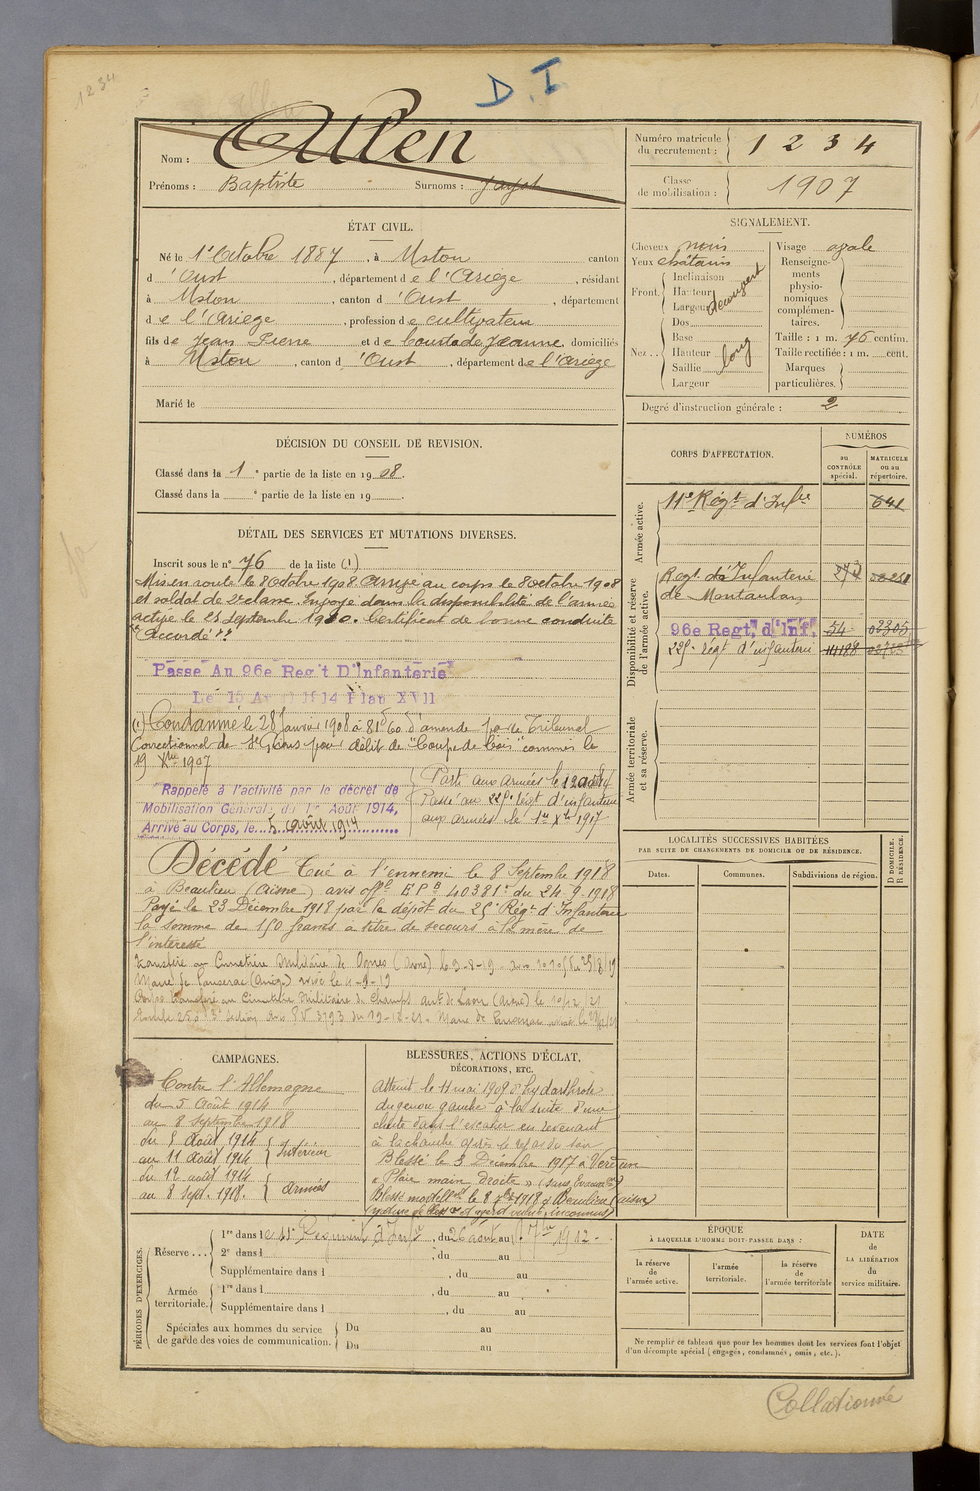 1234
D.I
Nom : Allen
Prénoms : Baptiste Surnoms :
Numéro matricule du recrutement : 1234
Classe de mobilisation : 1907
ÉTAT CIVIL.
Né le 1er Octobre 1887, à Ustou canton
d'Oust, département de l'Ariège, résidant
à Ustou, canton d'Oust, département
de l'Ariège, profession de cultivateur
fils de Jean Pierre et de Coustade Jeanne, domiciliés
à Ustou, canton d'Oust, département de l'Ariège
Marié le
SIGNALEMENT.
Cheveux noirs
Yeux châtains
Front. Inclinaison
Hauteur
Largeur
découvert
Nez.. Dos
Base
Hauteur
Saillie
Largeur
long
Visage ovale
Renseignements physionomiques complémentaires.
Taille : 1 m. 76 centim.
Taille rectifiée : 1 m. cent.
Marques particulières.
Degré d'instruction générale : 2
DÉCISION DU CONSEIL DE REVISION.
Classé dans la 1e partie de la liste en 1908.
Classé dans la e partie de la liste en 19 .
DÉTAIL DES SERVICES ET MUTATIONS DIVERSES.
Inscrit sous le n° 76 de la liste (1)
Mis en route le 8 Octobre 1908. Arrivé au corps le 8 octobre 1908
et soldat de 2e classe. Envoyé dans la disponibilité de l'armée
active le 25 Septembre 1910. Certificat de bonne conduite
"Accordé"
Passé Au 96e Reg't D'Infanterie
Le 15 Avril 1914 Plan XVII
(1) Condamné le 28 Janvier 1908 à 81f60 d'amende par le Tribunal
Correctionnel de St Girons pour délit de "Coupe de bois" commis le
19 Xbre 1907
Rappelé à l'activité par le décret de
Mobilisation Générale du 1er Août 1914,
Arrivé au Corps, le 5 août 1914
Parti aux armées le 12 août 14
Passé au 225e régt d'infanterie
aux armées le 1er Xbre 1917
Décédé Tué à l'ennemi le 8 Septembre 1918
à Beaulieu (Aisne) avis offel EPB 40381 du 24-9-1918
Payé le 23 Décembre 1918 par le dépôt du 25e Régt d'Infanterie
la somme de 150 francs à titre de secours à la mère de
l'intéressé
Transféré au Cimetière Militaire de (Aisne) le 9-8-19
Corps transféré au Cimetière Militaire de Champs
CORPS D'AFFECTATION.
NUMÉROS
au CONTRÔLE spécial.
MATRICULE ou au répertoire.
Armée active.
11e Régt d'Infie 641
Disponibilité et réserve de l'armée active.
Regt d'Infanterie
de Montauban
96e Regt. d'Inf. 54 02305
225e régt d'infanterie
Armée territoriale et sa réserve.
LOCALITÉS SUCCESSIVES HABITÉES
PAR SUITE DE CHANGEMENTS DE DOMICILE OU DE RÉSIDENCE.
Dates. Communes. Subdivisions de région. D DOMICILE. R RÉSIDENCE.
CAMPAGNES.
Contre l'Allemagne
du 5 Août 1914
au 8 septembre 1918
du 5 Août 1914
au 11 août 1914 Intérieur
du 12 août 1914
au 8 Sept. 1918. Armées
BLESSURES, ACTIONS D'ÉCLAT,
DÉCORATIONS, ETC.
Atteint le 11 mai 1909 d'hydarthrose
du genou gauche à la suite d'une
chute dans l'escalier en revenant
à la chambre après le repas du soir
Blessé le 3 Décembre 1917 à Verdun
« Plaie main droite »
Blessé mortellt le 8 7bre 1918 à Beaulieu (Aisne)
PÉRIODES D'EXERCICES.
Réserve ... 1re dans le 11e Régiment d'Infie, du 26 août au 7bre 1912.
2e dans l , du au
Supplémentaire dans l , du au
Armée territoriale. 1re dans l , du au
Supplémentaire dans l , du au
Spéciales aux hommes du service de garde des voies de communication. Du au
Du au
ÉPOQUE
À LAQUELLE L'HOMME DOIT PASSER DANS :
la réserve de l'armée active.
l'armée territoriale.
la réserve de l'armée territoriale
DATE de LA LIBÉRATION du service militaire.
Ne remplir ce tableau que pour les hommes dont les services font l'objet
d'un décompte spécial (engagés, condamnés, omis, etc.).
Collationné